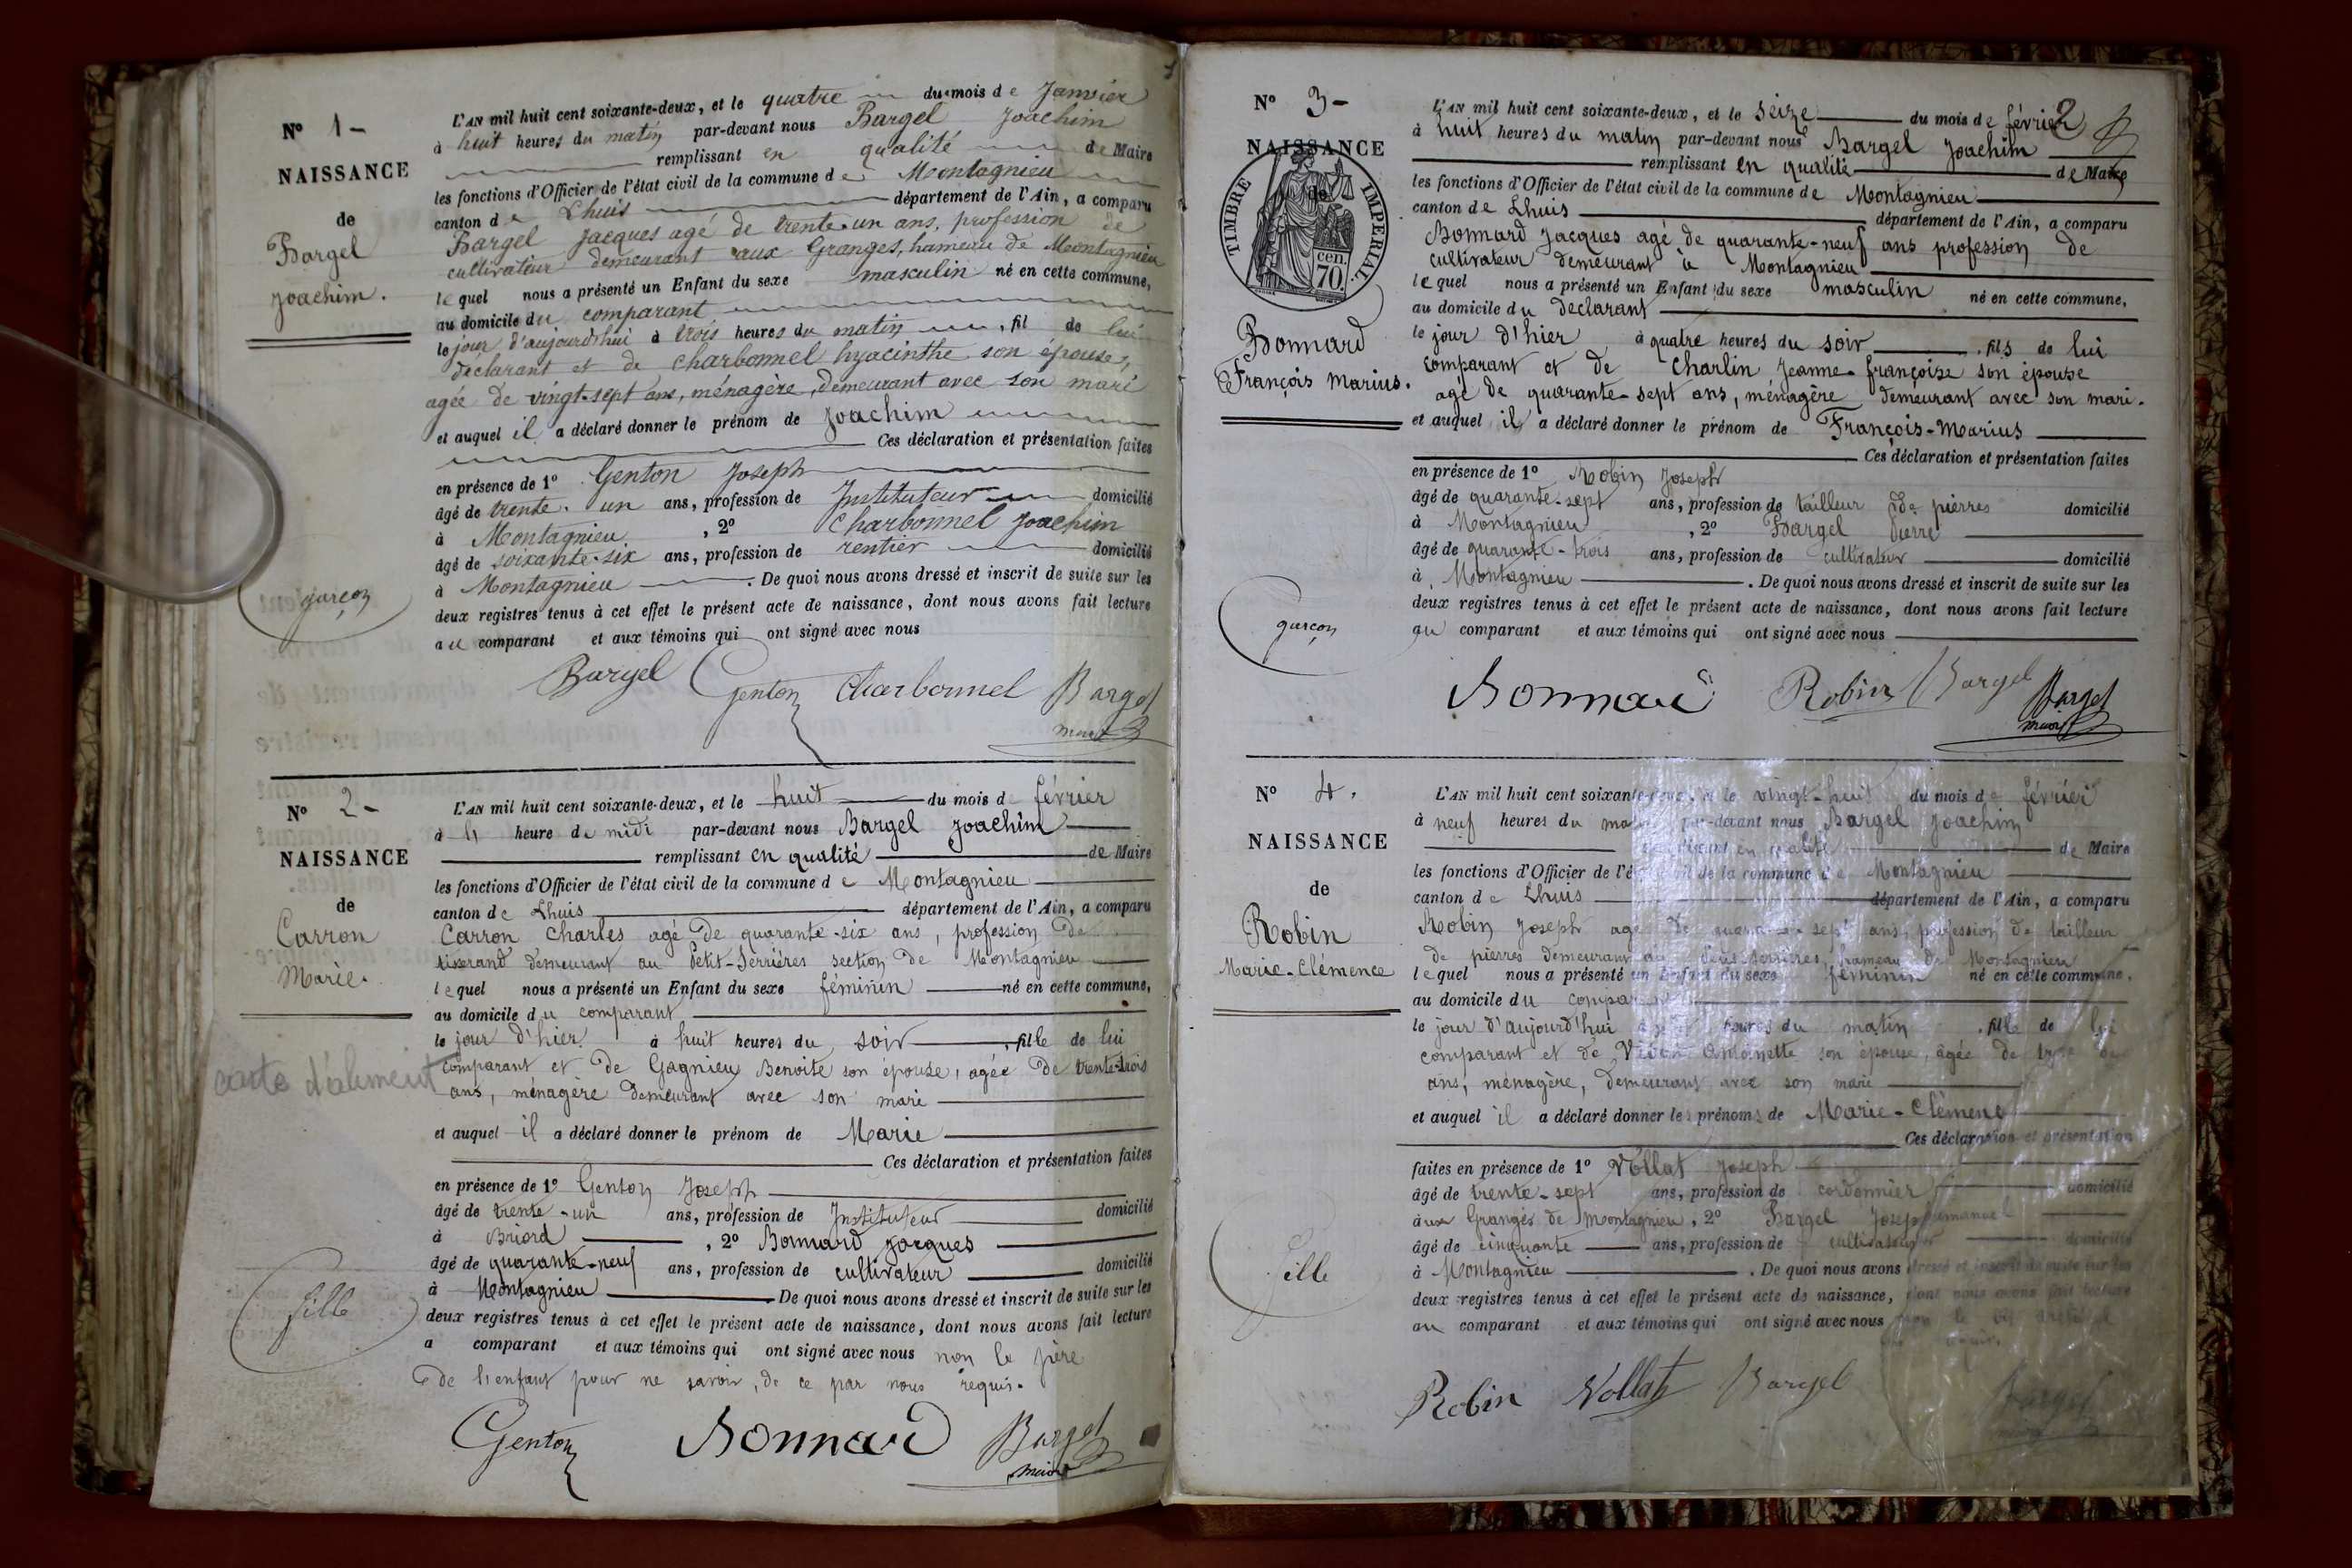 N° 1 -
NAISSANCE
de
Bargel
Joachim.
garçon
L'AN mil huit cent soixante-deux, et le quatre du mois de Janvier
à huit heures du matin par-devant nous Bargel Joachim
remplissant en qualité de Maire
les fonctions d'Officier de l'état civil de la commune de Montagnieu
canton de Lhuis département de l'Ain, a comparu
Bargel Jacques agé de trente-un ans, profession de
cultivateur demeurant aux Granges, hameau de Montagnieu
lequel nous a présenté un Enfant du sexe masculin né en cette commune,
au domicile du comparant
le jour d'aujourd'hui à trois heures du matin, fil de lui
déclarant et de Charbonnel hyacinthe son épouse,
agée de vingt-sept ans, ménagère, demeurant avec son mari
et auquel il a déclaré donner le prénom de Joachim
Ces déclaration et présentation faites
en présence de 1° Genton Joseph
âgé de trente-un ans, profession de Instituteur domicilié
à Montagnieu, 2° Charbonnel Joachim
âgé de soixante-six ans, profession de rentier domicilié
à Montagnieu. De quoi nous avons dressé et inscrit de suite sur les
deux registres tenus à cet effet le présent acte de naissance, dont nous avons fait lecture
au comparant et aux témoins qui ont signé avec nous
Bargel Genton Charbonnel Bargel
maire
N° 2 -
NAISSANCE
de
Carron
Marie.
carte d'aliment
fille
L'AN mil huit cent soixante-deux, et le huit du mois de février
à heure de midi par-devant nous Bargel Joachim
remplissant en qualité de Maire
les fonctions d'Officier de l'état civil de la commune de Montagnieu
canton de Lhuis département de l'Ain, a comparu
Carron Charles agé de quarante-six ans, profession de
tisserand demeurant au Petit-Serrières section de Montagnieu
lequel nous a présenté un Enfant du sexe féminin né en cette commune,
au domicile du comparant
le jour d'hier à huit heures du soir, fille de lui
comparant et de Gagnieu Benoite son épouse, agée de trente-trois
ans, ménagère demeurant avec son mari
et auquel il a déclaré donner le prénom de Marie
Ces déclaration et présentation faites
en présence de 1° Genton Joseph
âgé de trente-un ans, profession de Instituteur domicilié
à Briord, 2° Bonnard Jacques
âgé de quarante-neuf ans, profession de cultivateur domicilié
à Montagnieu. De quoi nous avons dressé et inscrit de suite sur les
deux registres tenus à cet effet le présent acte de naissance, dont nous avons fait lecture
a comparant et aux témoins qui ont signé avec nous non le père
de l'enfant pour ne savoir, de ce par nous requis.
Genton Bonnard Bargel
maire
2
N° 3 -
NAISSANCE
de
TIMBRE IMPERIAL.
70. cen.
Bonnard
François Marius.
garçon
L'AN mil huit cent soixante-deux, et le seize du mois de février
à huit heures du matin par-devant nous Bargel Joachim
remplissant en qualité de Maire
les fonctions d'Officier de l'état civil de la commune de Montagnieu
canton de Lhuis département de l'Ain, a comparu
Bonnard Jacques agé de quarante-neuf ans profession de
cultivateur demeurant à Montagnieu
lequel nous a présenté un Enfant du sexe masculin né en cette commune,
au domicile du declarant
le jour d'hier à quatre heures du soir, fils de lui
comparant et de Charlin Jeanne-françoise son épouse
agé de quarante-sept ans, ménagère demeurant avec son mari.
et auquel il a déclaré donner le prénom de François-Marius
Ces déclaration et présentation faites
en présence de 1° Robin Joseph
âgé de quarante-sept ans, profession de tailleur de pierres domicilié
à Montagnieu, 2° Bargel Pierre
âgé de quarante-trois ans, profession de cultivateur domicilié
à Montagnieu. De quoi nous avons dressé et inscrit de suite sur les
deux registres tenus à cet effet le présent acte de naissance, dont nous avons fait lecture
au comparant et aux témoins qui ont signé avec nous
Bonnard Robin Bargel Bargel
maire
N° 4.
NAISSANCE
de
Robin
Marie-Clémence
fille
L'AN mil huit cent soixante-deux, et le vingt-huit du mois de février
à neuf heures du matin par-devant nous Bargel Joachim
remplissant en qualité de Maire
les fonctions d'Officier de l'état civil de la commune de Montagnieu
canton de Lhuis département de l'Ain, a comparu
Robin Joseph agé de quarante-sept ans, profession de tailleur
de pierres demeurant hameau de Montagnieu
lequel nous a présenté un Enfant du sexe féminin né en cette commune,
au domicile du comparant
le jour d'aujourd'hui à heures du matin, fille de lui
comparant et de Antoinette son épouse, âgée de
ans, ménagère, demeurant avec son mari
et auquel il a déclaré donner les prénoms de Marie-Clémence
Ces déclaration et présentation
faites en présence de 1° Vollat Joseph
âgé de trente-sept ans, profession de cordonnier domicilié
aux Granges de Montagnieu, 2° Bargel Joseph
âgé de cinquante ans, profession de cultivateur domicilié
à Montagnieu. De quoi nous avons dressé et inscrit de suite sur les
deux registres tenus à cet effet le présent acte de naissance, dont nous avons fait lecture
au comparant et aux témoins qui ont signé avec nous
Robin Vollat Bargel Bargel